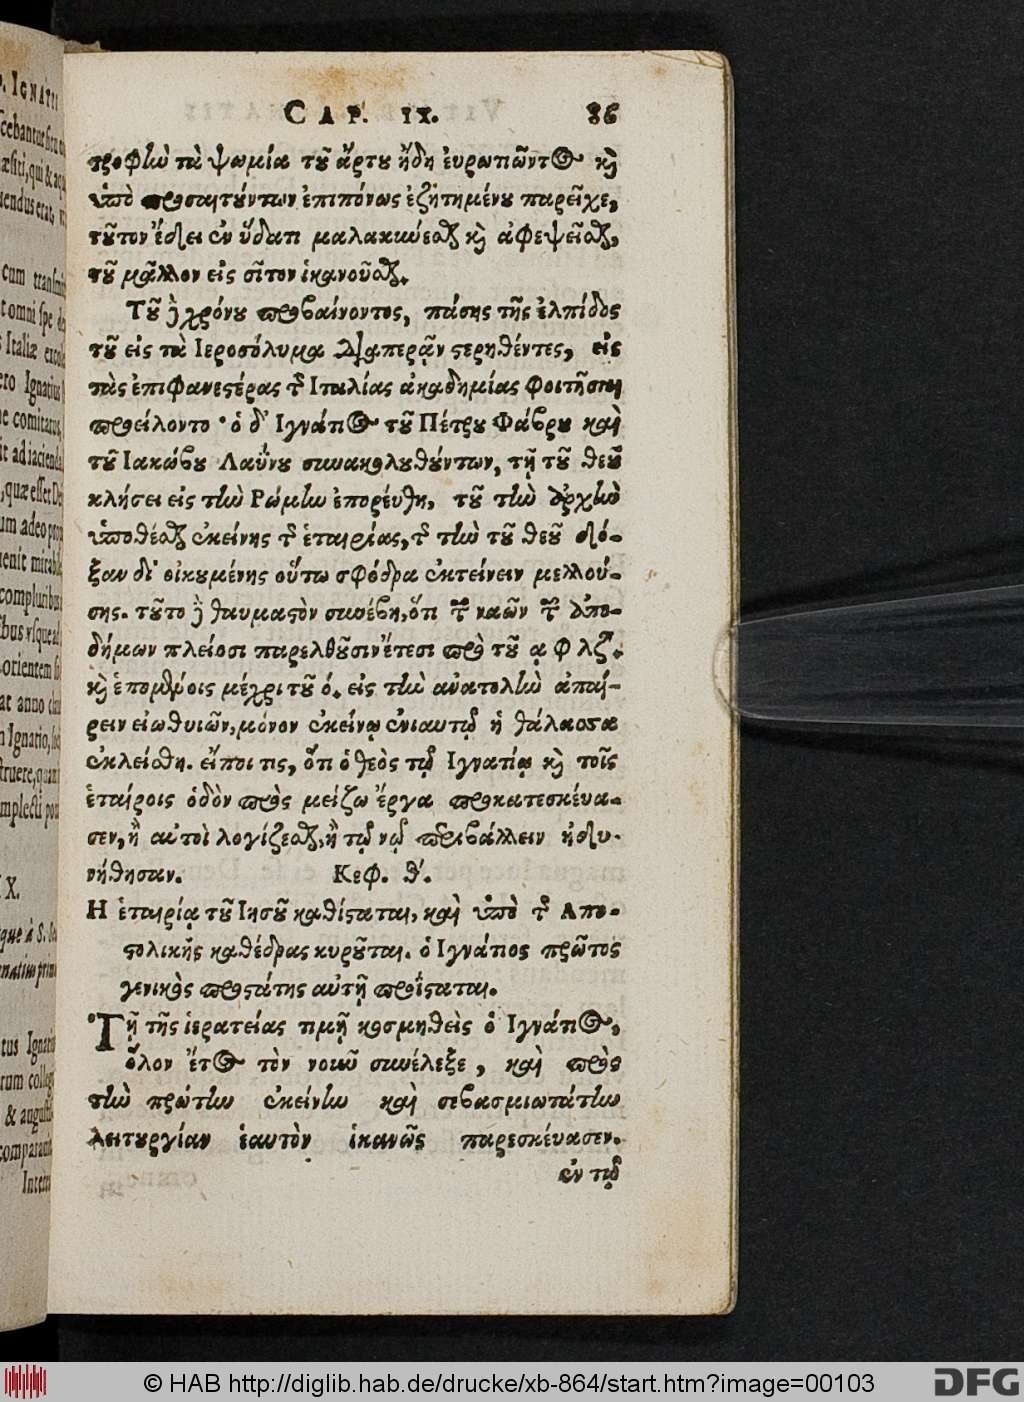 CAP. IX. 86
τροφὴν τὰ ψωμία τοῦ ἄρτου ἤδη εὐρωπῶντος καὶ
ὑπὸ προσαιτούντων ἐπιπόνως ἐζητημένου παρεῖχε,
τοῦτον ἔδει ἐν ὕδατι μαλακκύεσθαι καὶ ἀφεψεῖσθαι,
τοῦ μᾶλλον εἰς σῖτον ἱκανοῦσθαι.
Τοῦ δὲ χρόνου προβαίνοντος, πάσης τῆς ἐλπίδος
τοῦ εἰς τὰ Ιεροσόλυμα διαπερᾷν στερηθέντες, εἰς
τὰς ἐπιφανεστέρας τῆς Ιταλίας ἀκαδημίας φοιτῆσαι
προείλοντο· ὁ δ' Ιγνάτιος τοῦ Πέτρου Φάβρου καὶ
τοῦ Ιακώβου Λαΐνου συνακολουθούντων, τῇ τοῦ θεοῦ
κλήσει εἰς τὴν Ρώμην ἐπορεύθη, τοῦ τὴν ἀρχὴν
ὑποθέσθαι ἐκείνης τῆς ἑταιρίας, τῆς τὴν τοῦ θεοῦ δό-
ξαν δι' οἰκουμένης οὕτω σφόδρα ἐκτείνειν μελλού-
σης. τοῦτο δὲ θαυμαστὸν συνέβη, ὅτι τῶν ναῶν τῶν ἀπο-
δήμων πλείοσι παρελθοῦσιν ἔτεσι πρὸ τοῦ α φ λζ.
καὶ ἑπομένοις μέχρι τοῦ ό. εἰς τὴν ἀνατολὴν ἀπαί-
ρειν εἰωθυιῶν, μόνον ἐκείνῳ ἐνιαυτῷ ἡ θάλασσα
ἐκλείσθη. εἴποι τις, ὅτι ὁ θεὸς τῷ Ιγνατίῳ καὶ τοῖς
ἑταίροις ὁδὸν πρὸς μείζω ἔργα προκατεσκεύα-
σεν, ἢ αὐτοὶ λογίζεσθαι, ἢ τῷ νῷ περιβάλλειν ἠδυ-
νήθησαν. Κεφ. θ΄.
Η ἑταιρία τοῦ Ιησοῦ καθίσταται, καὶ ὑπὸ τῆς Απο-
στολικῆς καθέδρας κυροῦται. ὁ Ιγνάτιος πρῶτος
γενικὸς προστάτης αὐτῇ προΐσταται.
Τῇ τῆς ἱερατείας τιμῇ κοσμηθεὶς ὁ Ιγνάτιος,
ὅλον ἔτος τὸν νοῦν συνέλεξε, καὶ πρὸς
τὴν πρώτην ἐκείνην καὶ σεβασμιωτάτην
λειτουργίαν ἑαυτὸν ἱκανῶς παρεσκεύασεν.
ἐν τῷ
© HAB http://diglib.hab.de/drucke/xb-864/start.htm?image=00103
DFG